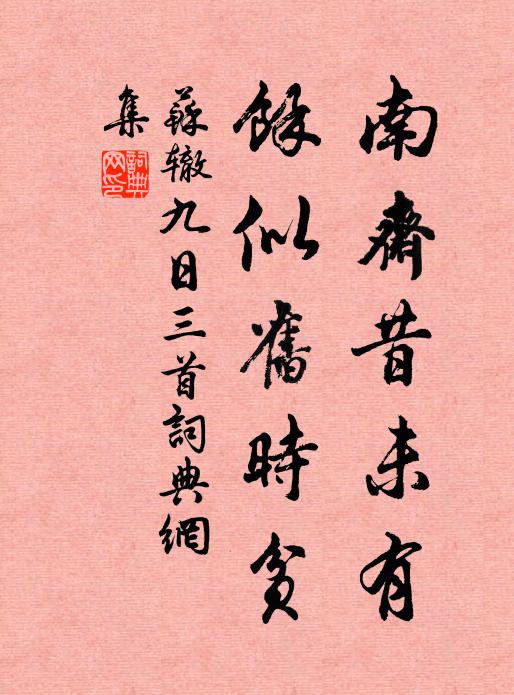 南齋昔未有
餘似舊時貧
蘇辙九日三首詞典網
集
詞典
网印